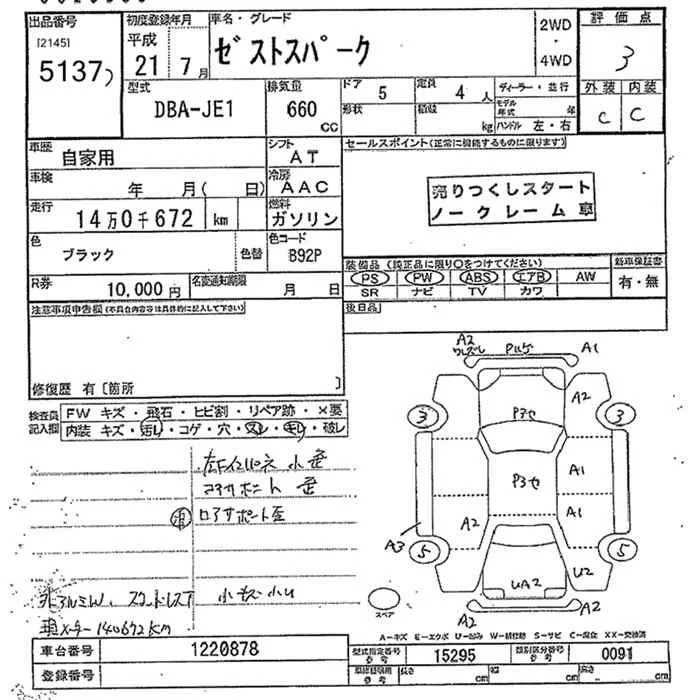 出品番号
[2145]
5137
初度登録年月
平成
21 7月
車名・グレード
ゼストスパーク
2WD
・
4WD
評価点
3
外装 内装
C C
型式
DBA-JE1
排気量
660 cc
ドア
5
定員
4人
形状
積載
kg
ディーラー・並行
モデル年式 年
ハンドル 左・右
車歴
自家用
シフト
AT
セールスポイント(正常に機能するものに限ります)
車検
年 月( 日)
冷房
AAC
売りつくしスタート
ノークレーム車
走行
14万0千672 km
燃料
ガソリン
色
ブラック
色替
色コード
B92P
装備品(純正品に限り○をつけてください)
PS PW ABS エアB AW
SR ナビ TV カワ
新車保証書
有・無
R券
10,000円
名変通知期限
月 日
後日品
注意事項申告欄(不具合内容等は具体的に記入して下さい)
修復歴 有〔箇所 〕
検査員記入欄
FW キズ・飛石・ヒビ割・リペア跡・×要
内装 キズ・汚レ・コゲ・穴・スレ・キレ・破レ
コアサポート 歪
ロアサポート歪
小キズ・小U
現メーター140672KM
A2
A1
A2
3
3
P3セ
P3セ
A1
A1
A2
A3
5
5
UA2
U2
A2
A2
スペア
A-キズ E-エクボ U-凹み W-補修跡 S-サビ C-腐食 XX-交換済
車台番号
1220878
型式指定番号
参考
15295
類別区分番号
参考
0091
登録番号
長さ cm
幅 cm
高さ cm